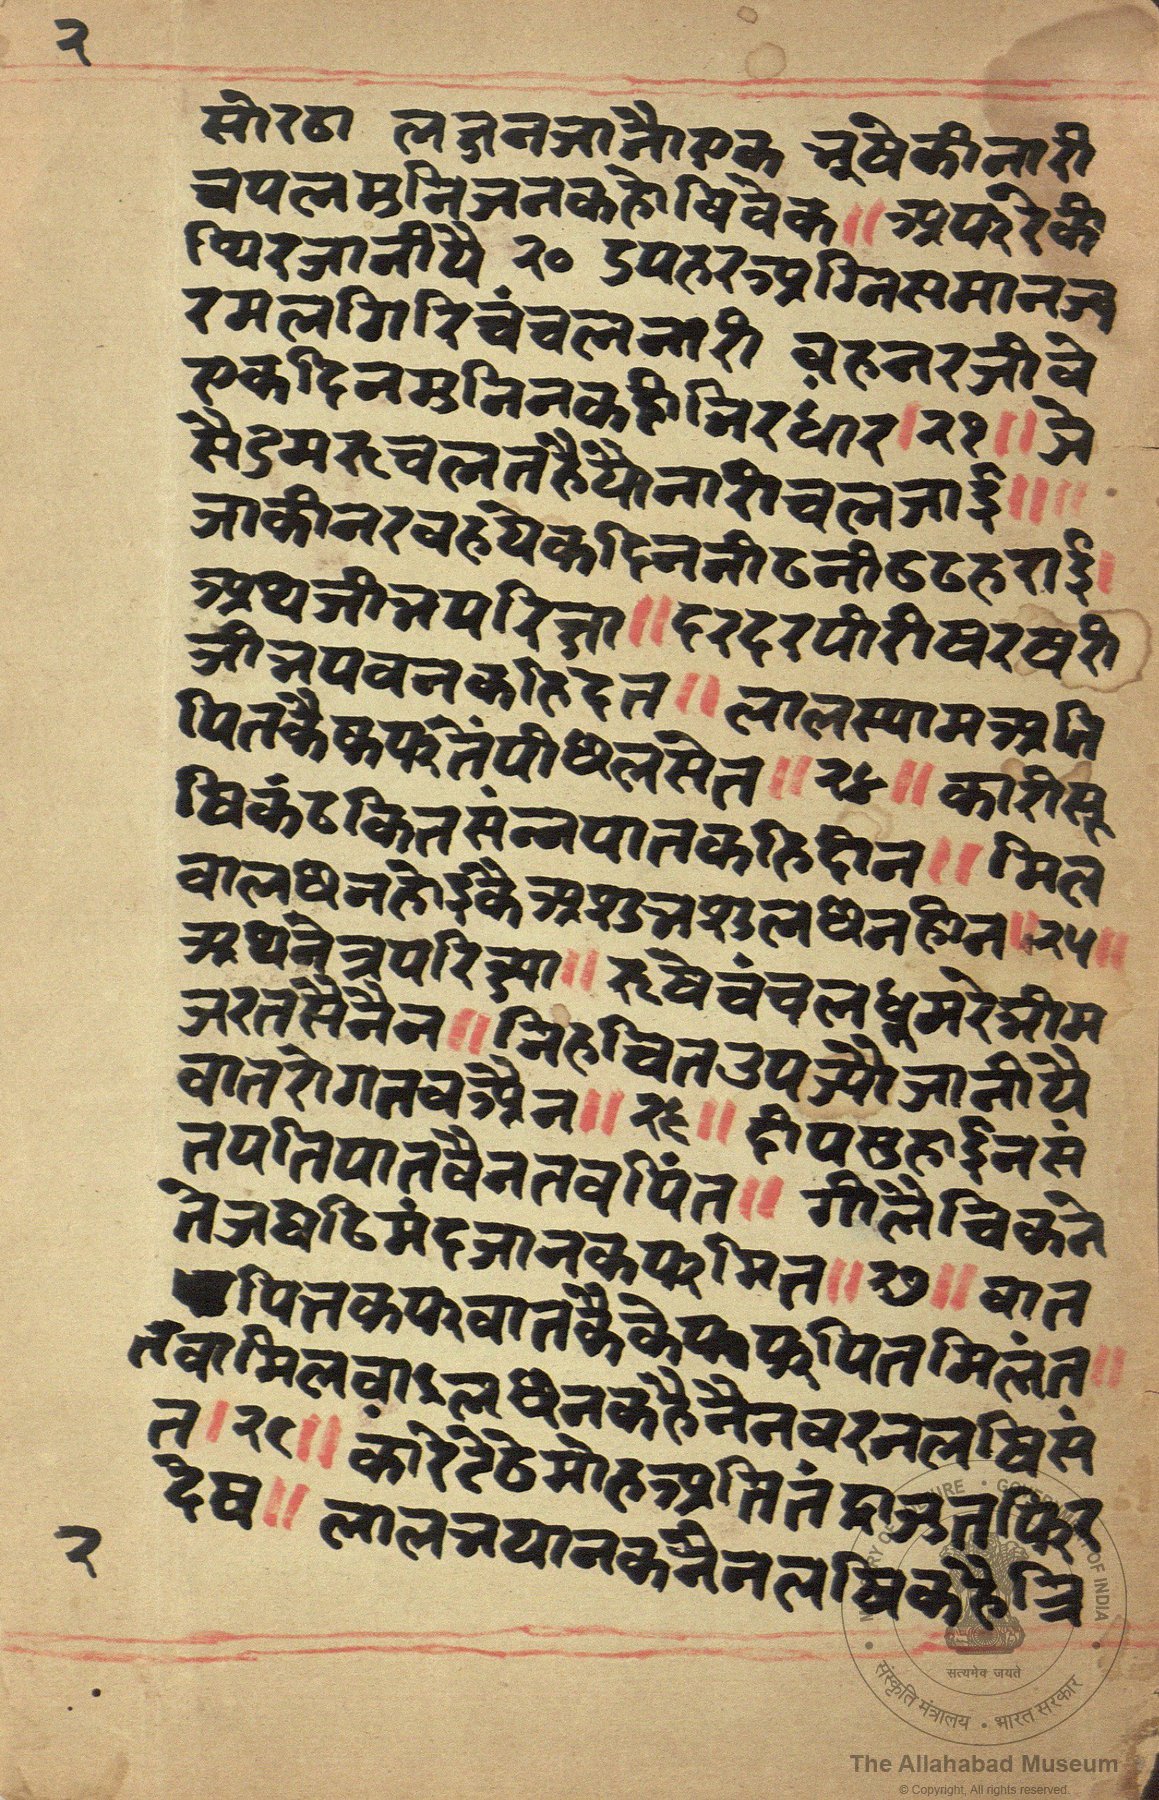 २
सोरठा लछनजानौएक भूषेकीनारी
चपलमुनिजनकहोविवेक॥ अफरेकी
थिरजानीयै २० डपहरअग्निसमानज्व
रमलगिरिचंचलनारी वहनरजीवे
एकदिनमुनिनकहीनिरधार।२१॥जे
सैडमरूचलतहैयौनारीचलजाई॥
जाकीनरवहयेकदिननीठनीठठहराई।
अथजीभपरिछा॥दरदरपीरीषरषरी
जीभपवनकहिदत॥लालस्यामअति
पितकैकफतंपीछलसेत॥२४॥कारीसू
षिकंटकितसंन्नपातकहिदीन॥मिल
वालछनहोईकैअशुभशुलछनहीन॥२५॥
अथनेत्रपरिक्षा॥रूषेचंचलधूमरेभीम
जरतसैनैन॥भिहचितउपज्यौजानीयै
वातरोगतवऐन॥२६॥दीपसुहाईनसं
तपतिपातवैनतवपिंत॥गीलैचिकने
तेजघटिमंदजानकफमित॥२७॥वात
पित्तकफवातकैकेफफपितमिलंत॥
तंवामिलवाऽलछनकहैनैनवरनलषिसं
त।२८॥कारेटेठेमोहअतितंद्राजुतफिर
देष॥लालभयानकनैनलषिकहैत्रि
२
MINISTRY OF CULTURE • GOVERNMENT OF INDIA
सत्यमेव जयते
संस्कृति मंत्रालय • भारत सरकार
The Allahabad Museum
© Copyright, All rights reserved.